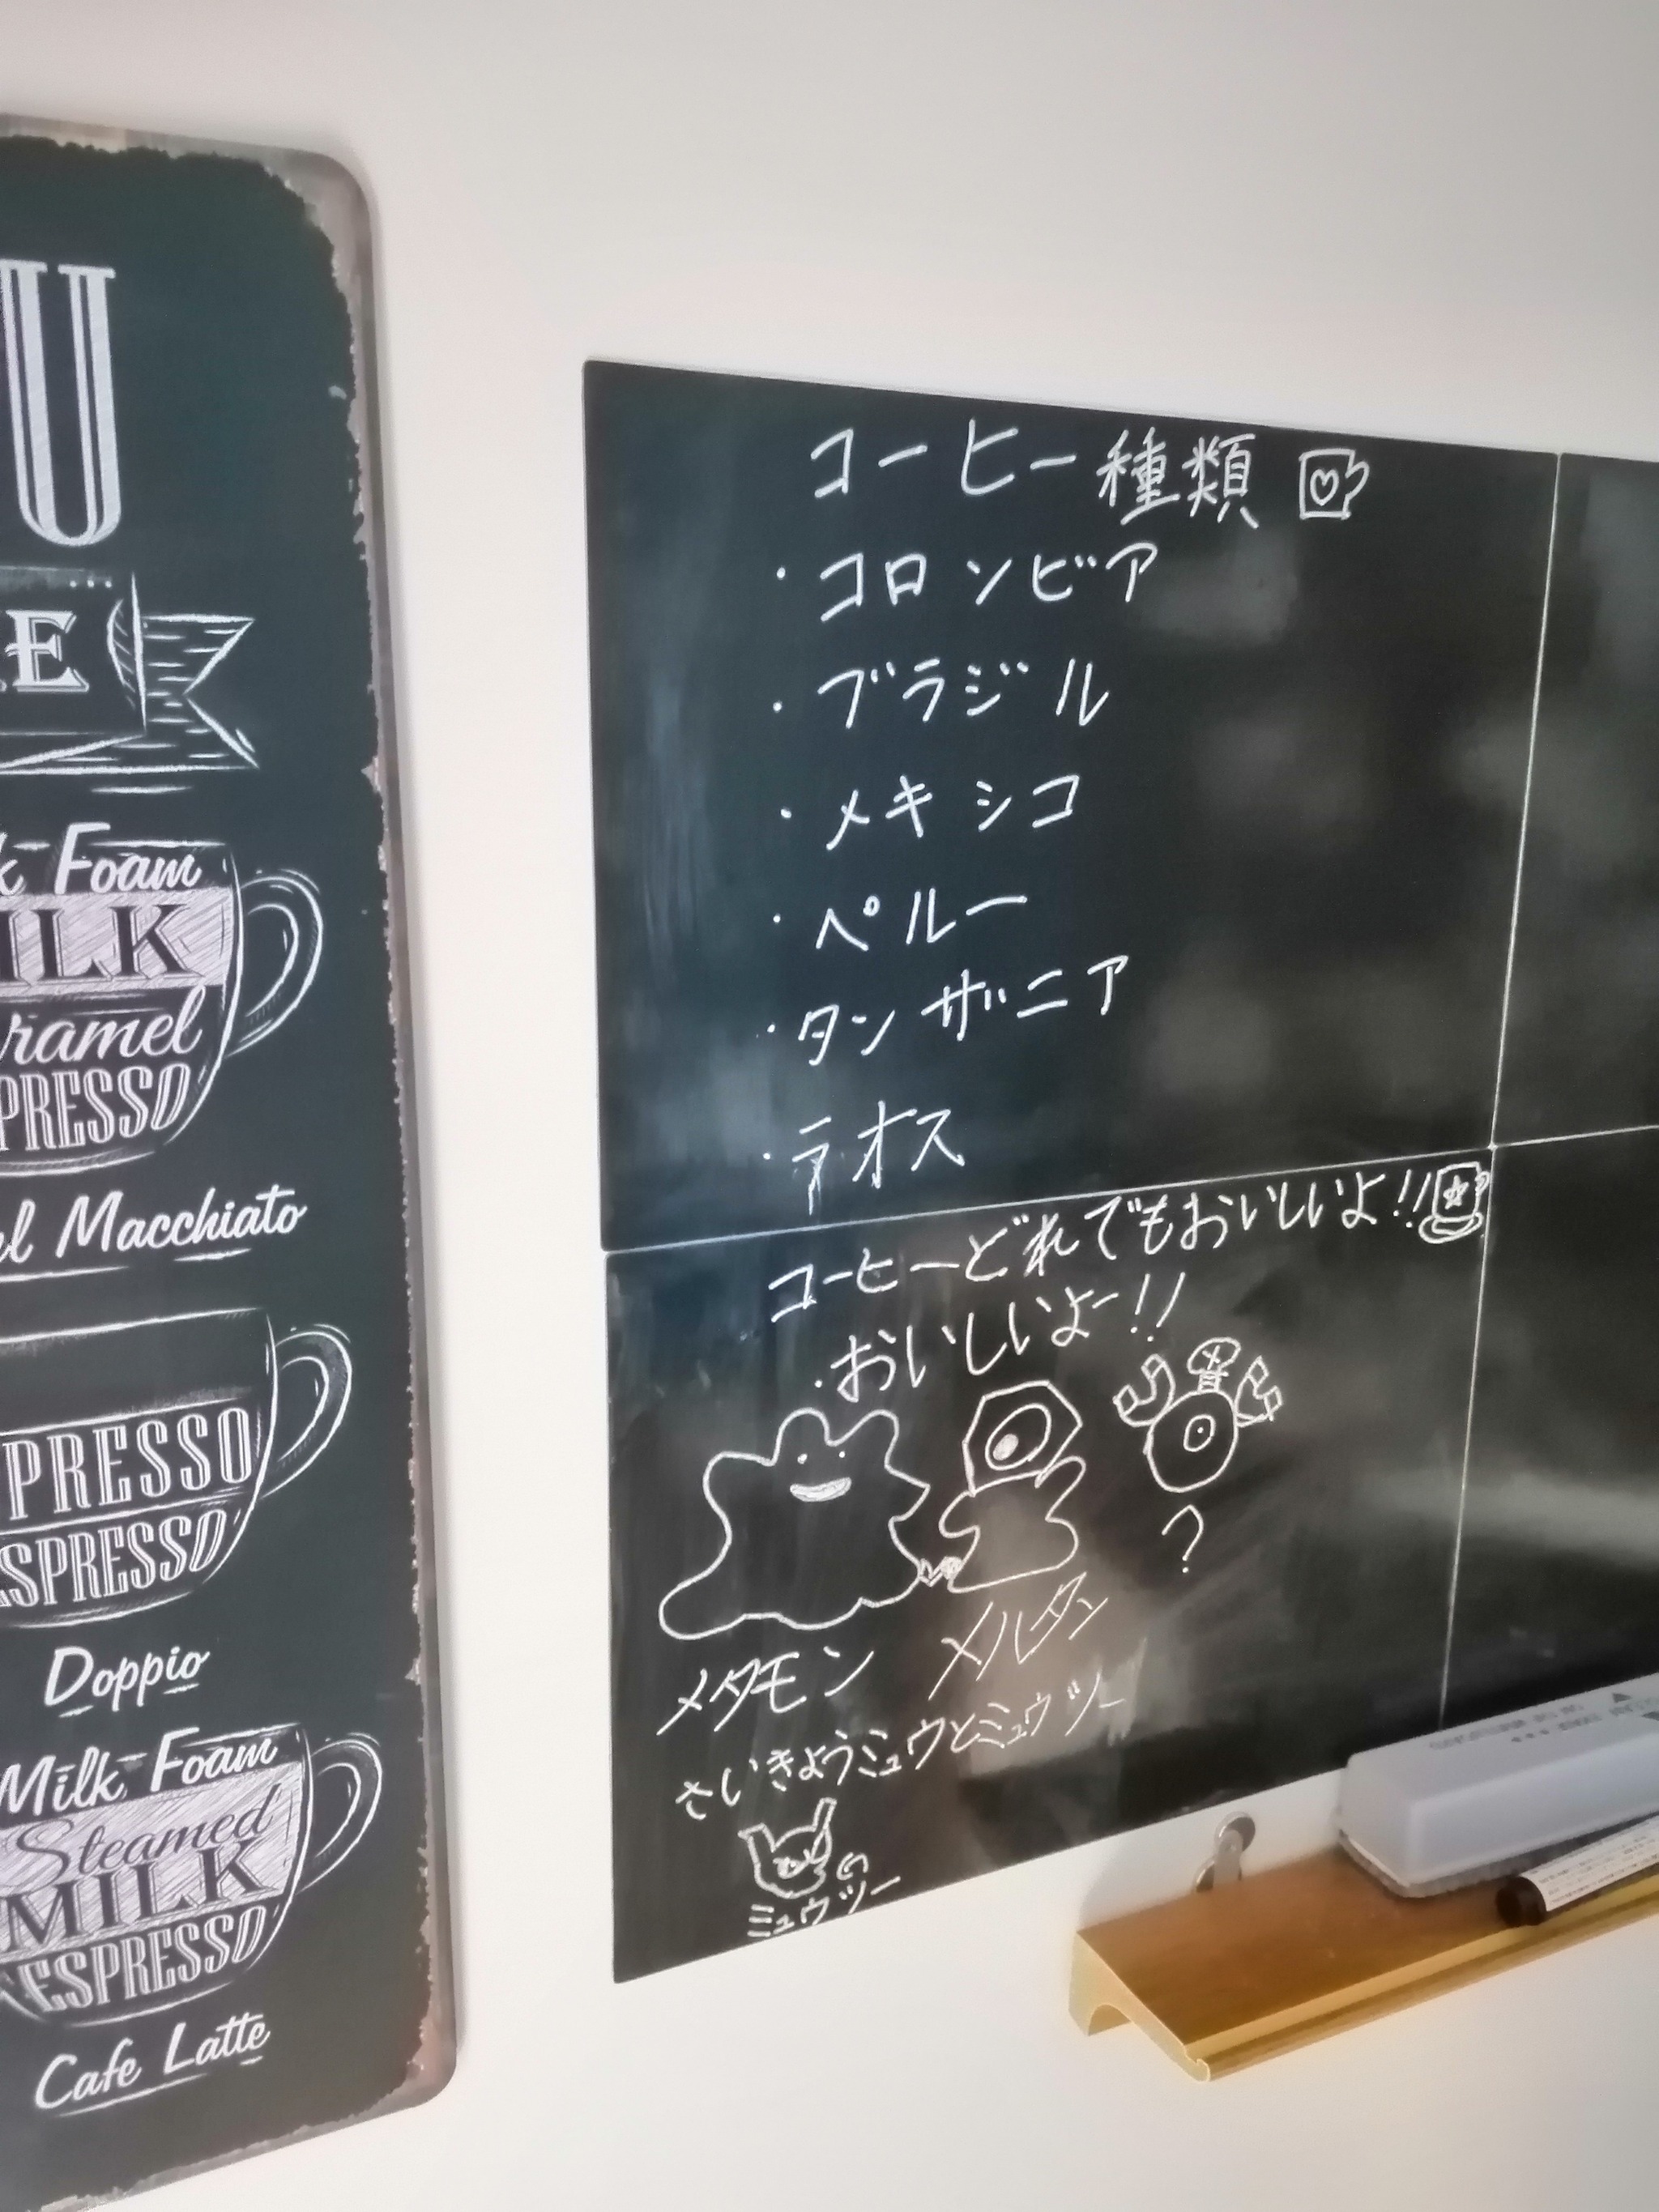 U
E
k Foam
ILK
ramel
PRESSO
el Macchiato
PRESSO
ESPRESSO
Doppio
Milk Foam
Steamed
MILK
ESPRESSO
Cafe Latte
コーヒー種類
・コロンビア
・ブラジル
・メキシコ
・ペルー
・タンザニア
・ラオス
コーヒーどれでもおいしいよ!!
・おいしいよー!!
?
メタモン メルタン
さいきょうミュウとミュウツー
ミュウツー